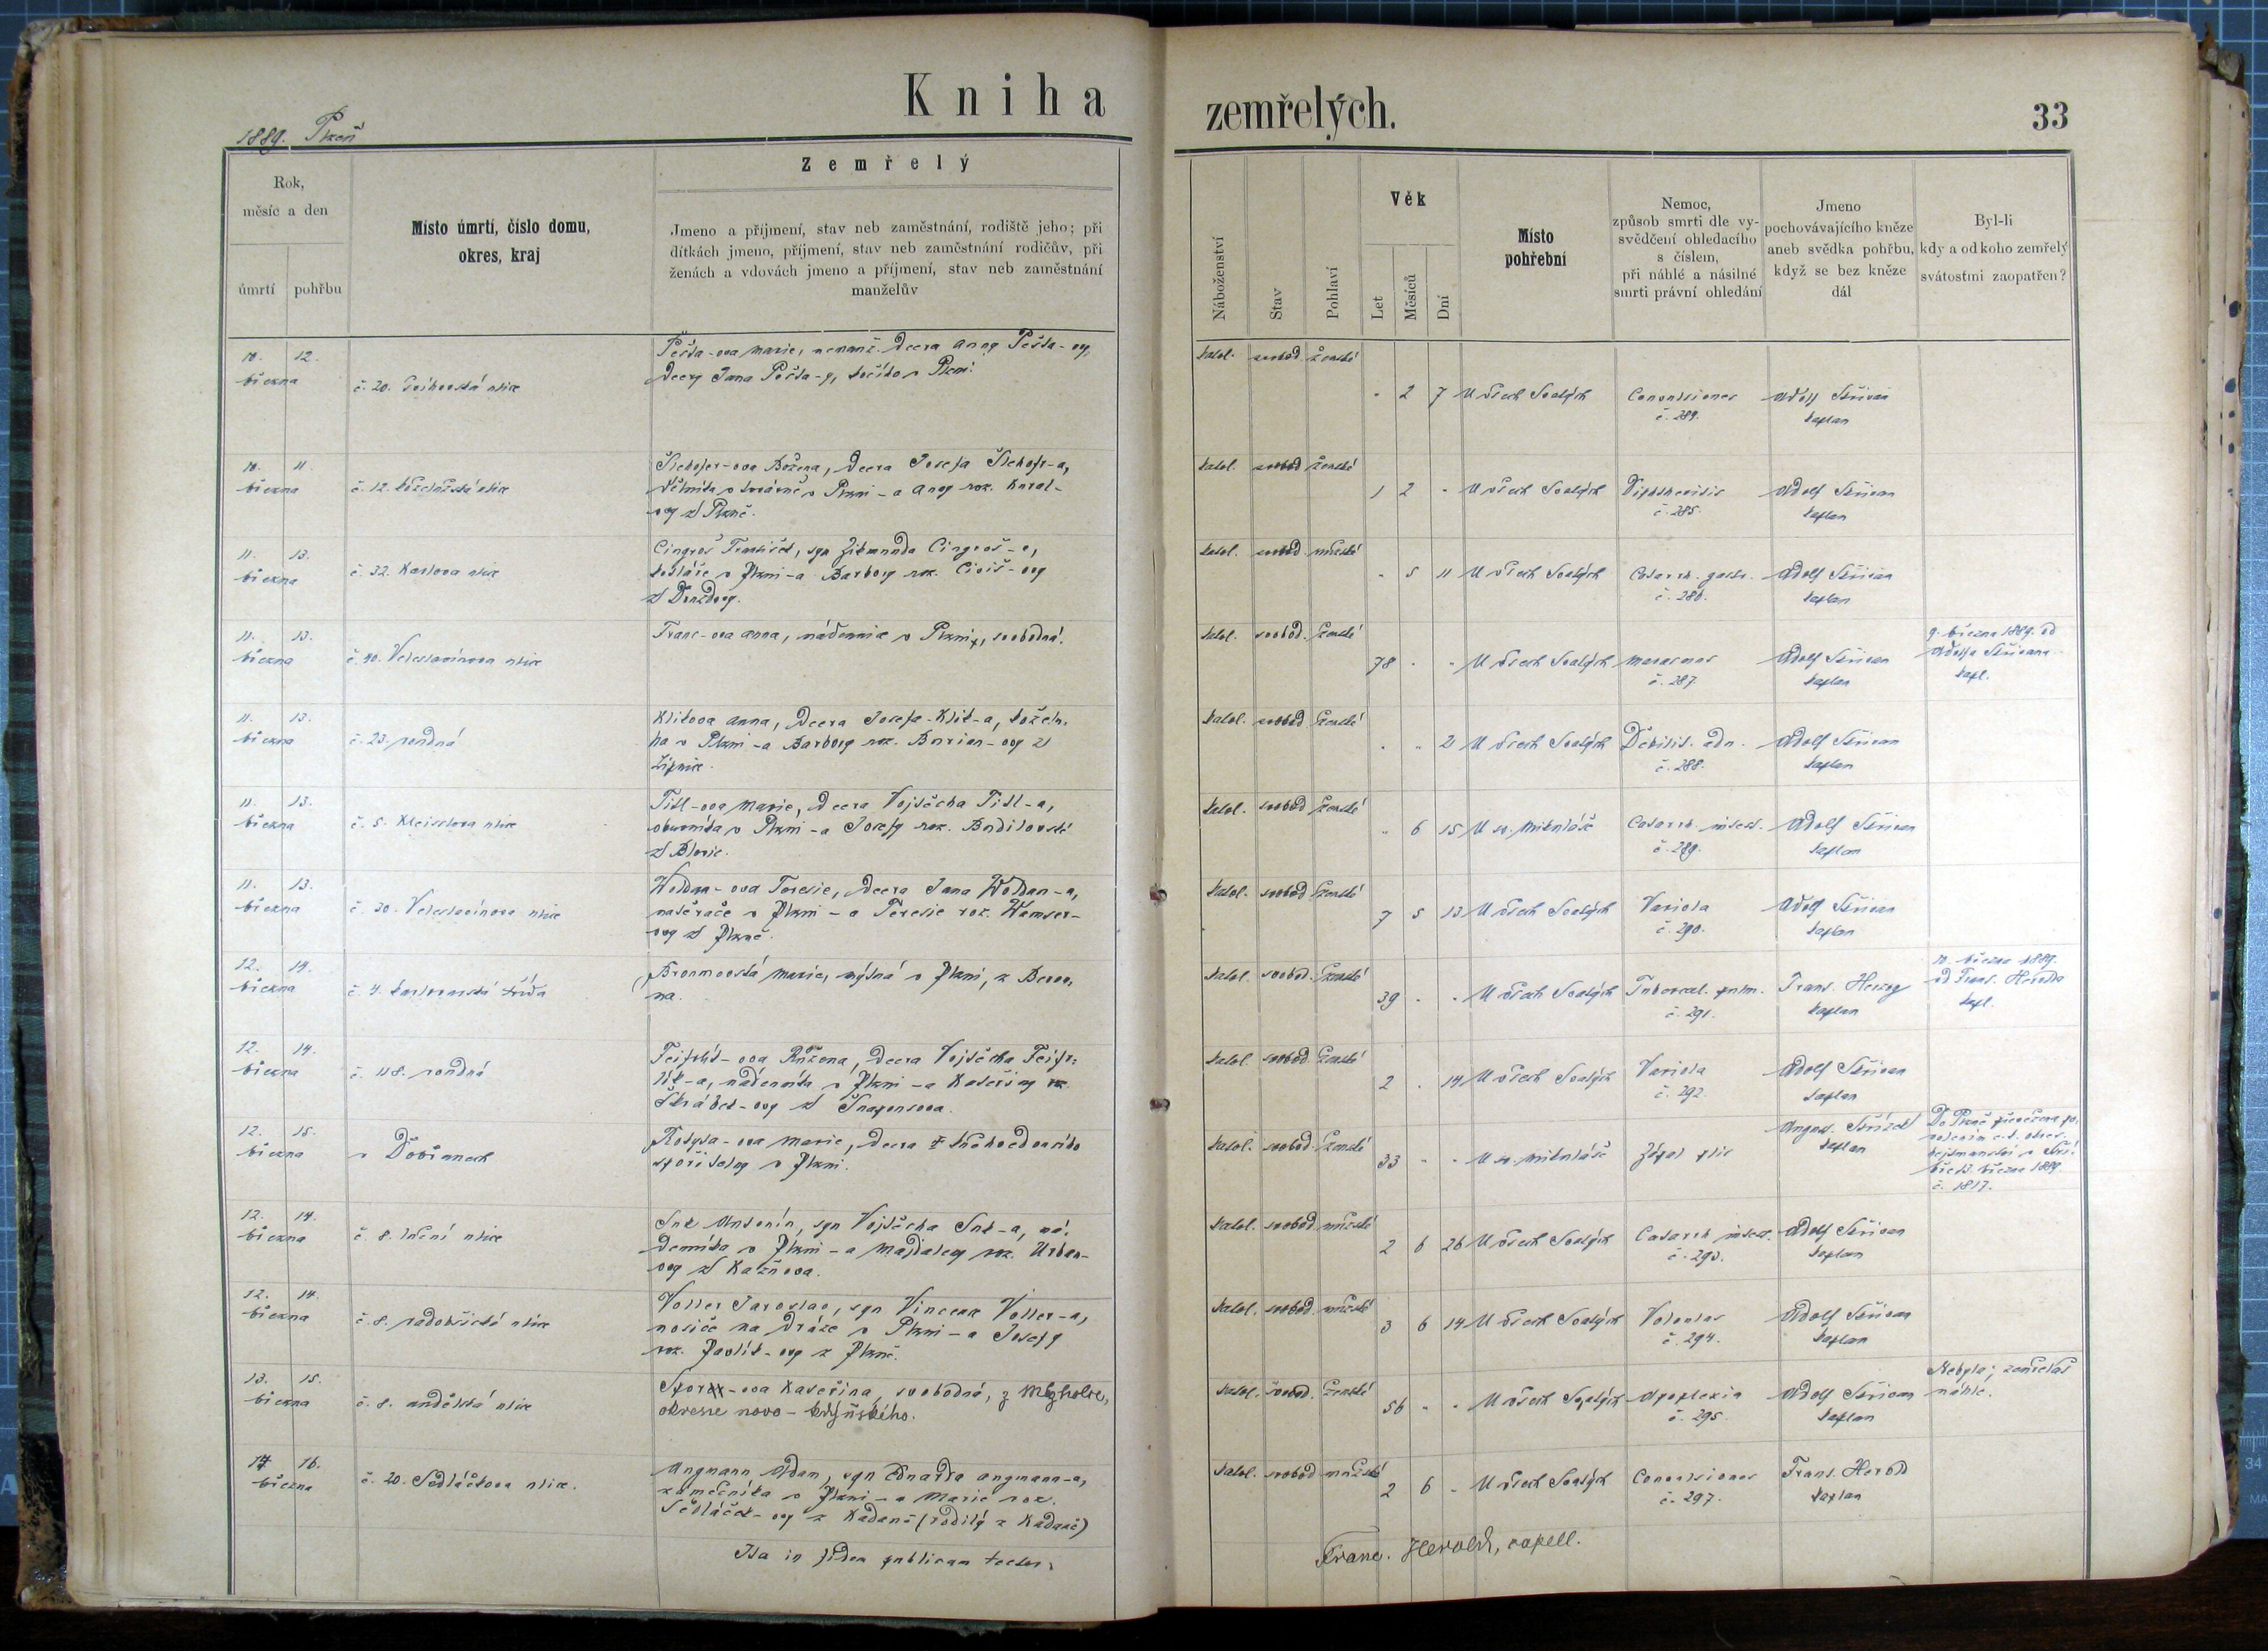 Kniha
zemřelých.
33
1889. Plzeň
Rok,
měsíc a den
úmrtí
pohřbu
Místo úmrtí, číslo domu,
okres, kraj
Zemřelý
Jmeno a příjmení, stav neb zaměstnání, rodiště jeho; při
dítkách jmeno, příjmení, stav neb zaměstnání rodičův, při
ženách a vdovách jmeno a příjmení, stav neb zaměstnání
manželův
Náboženství
Stav
Pohlaví
Věk
Let
Měsíců
Dní
Místo
pohřební
Nemoc,
způsob smrti dle vy-
svědčení ohledacího
s číslem,
při náhlé a násilné
smrti právní ohledání
Jmeno
pochovávajícího kněze
aneb svědka pohřbu,
když se bez kněze
dál
Byl-li
kdy a od koho zemřelý
svátostmi zaopatřen?
10. 12.
března
č. 20. ulice
Pešta-ova Marie, nemanž. dcera Anny Pešta-ovy,
dcery Jana Pešta-y, v Plzni.
katol. svobod. ženské
" 2 7 U všech Svatých Convulsiones Adolf Skřivan
č. 284. kaplan
10. 11.
března
č. 12. ulice
Božena, dcera Josefa
dělníka v továrně v Plzni - a Anny roz. Karel-
ovy z Plzně.
katol. svobod. ženské
1 2 " U všech Svatých Diphtheritis Adolf Skřivan
č. 285. kaplan
11. 13.
března
č. 32. Karlova ulice
Cingroš František, syn Zikmunda Cingroš-e,
kotláře v Plzni - a Barbory roz.
katol. svobod. mužské
" 5 11 U všech Svatých Catarrh. gastr. Adolf Skřivan
č. 286. kaplan
11. 13.
března
č. 40. Veleslavínova ulice
Franc-ova Anna, nádennice v Plzni, svobodná.
katol. svobod. ženské
78 " " U všech Svatých Marasmus Adolf Skřivan
č. 287. kaplan
9. března 1889. od
Adolfa Skřivana
kapl.
11. 13.
března
č. 23.
Klikova Anna, dcera Josefa Klik-a,
v Plzni - a Barbory roz. Burian-ovy z
katol. svobod. ženské
" " 2 U všech Svatých Debilit. adn. Adolf Skřivan
č. 288. kaplan
11. 13.
března
č. 5. Kleisslova ulice
Titl-ova Marie, dcera Vojtěcha Titl-a,
obuvníka v Plzni - a Josefy roz. Budilovské
z Blovic.
katol. svobod. ženské
" 6 15 U sv. Mikuláše Catarrh. intest. Adolf Skřivan
č. 289. kaplan
11. 13.
března
č. 30. Veleslavínova ulice
Woldan-ova Teresie, dcera Jana Woldan-a,
v Plzni - a Teresie roz. Wamser-
ovy z Plzně.
katol. svobod. ženské
7 5 13 U všech Svatých Variola Adolf Skřivan
č. 290. kaplan
12. 14.
března
č. 4. karlovarská třída
Marie, v Plzni, z
katol. svobod. ženské
39 " " U všech Svatých Tubercul. pulm. Franc. Herold
č. 291. kaplan
10. března 1889.
od Franc. Herolda
kapl.
12. 14.
března
č. 118.
Růžena, dcera Vojtěcha
nádenníka v Plzni - a Kateřiny roz.
Škrábek-ovy z Šnopousova.
katol. svobod. ženské
2 " 14 U všech Svatých Variola Adolf Skřivan
č. 292. kaplan
12. 15.
března
v Dobřanech
Kotyza-ova Marie, dcera
spořitelny v Plzni.
katol. svobod. ženské
33 " " U sv. Mikuláše kaplan
Do Plzně převežena po
března 1889.
č. 1817.
12. 14.
března
č. 8. ulice
Snk Antonín, syn Vojtěcha Snk-a, ná-
denníka v Plzni - a Majdaleny roz. Urban-
ovy z Kaznova.
katol. svobod. mužské
2 6 26 U všech Svatých Catarrh. intest. Adolf Skřivan
č. 293. kaplan
12. 14.
března
č. 8. radobčická ulice
Voller Jaroslav, syn Vincence Voller-a,
nosiče na dráze v Plzni - a Josefy
roz. Pavlík-ovy z Plzně.
katol. svobod. mužské
3 6 14 U všech Svatých Volvulus Adolf Skřivan
č. 294. kaplan
13. 15.
března
č. 8. andělská ulice
Kateřina, svobodná, z Mezholez,
okresu novo-kdyňského.
katol. svobod. ženské
56 " " U všech Svatých Apoplexia Adolf Skřivan
č. 295. kaplan
Nebyla; zemřelať
náhle.
14 16.
března
č. 20. Sedláčkova ulice.
Angmann Adam, syn Eduarda Angmann-a,
zámečníka v Plzni - a Marie roz.
Sedláček-ovy z Kadaně (rodilý z Kadaně)
katol. svobod. mužské
2 6 " U všech Svatých Convulsiones Franc. Herold
č. 297. kaplan
Ita in fidem publicam testor.
Franc. Herold, capell.